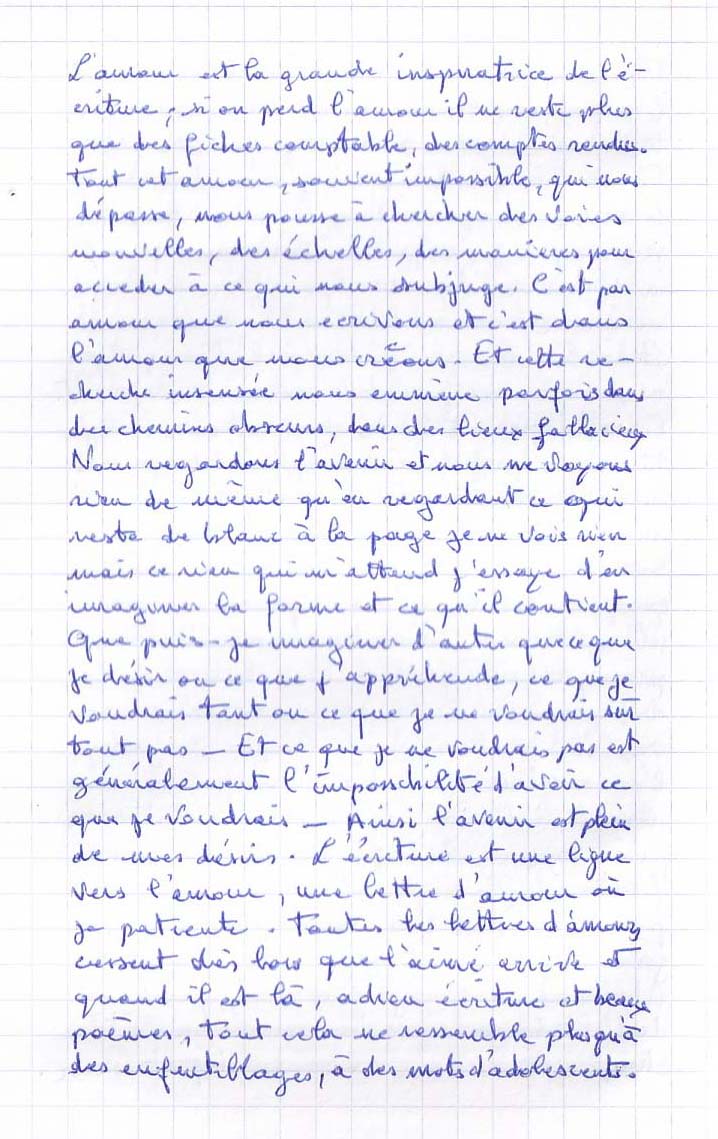 L'amour est la grande inspiratrice de l'é-
criture ; si on perd l'amour il ne reste plus
que des fiches comptable, des comptes rendus.
Tout cet amour, souvent impossible, qui nous
dépasse, nous pousse à chercher des voies
nouvelles, des échelles, des manières pour
acceder à ce qui nous subjuge. C'est par
amour que nous ecrivons et c'est dans
l'amour que nous créons. Et cette re-
cherche insensée nous emmène parfois dans
des chemins obscurs, dans des lieux fallacieux
Nous regardons l'avenir et nous ne voyons
rien de même qu'en regardant ce qui
reste de blanc à la page je ne vois rien
mais ce rien qui m'attend j'essaye d'en
imaginer la forme et ce qu'il contient.
Que puis-je imaginer d'autre que ce que
je désir ou ce que j'appréhende, ce que je
voudrais tant ou ce que je ne voudrais sur
tout pas — Et ce que je ne voudrais pas est
généralement l'impossibilité d'avoir ce
que je voudrais — Ainsi l'avenir est plein
de mes désirs. L'écriture est une ligne
vers l'amour, une lettre d'amour où
je patiente. Toutes les lettres d'amour
cessent dès lors que l'aimé arrive et
quand il est là, adieu écriture et beaux
poèmes, tout cela ne ressemble plus qu'à
des enfantillages, à des mots d'adolescents.